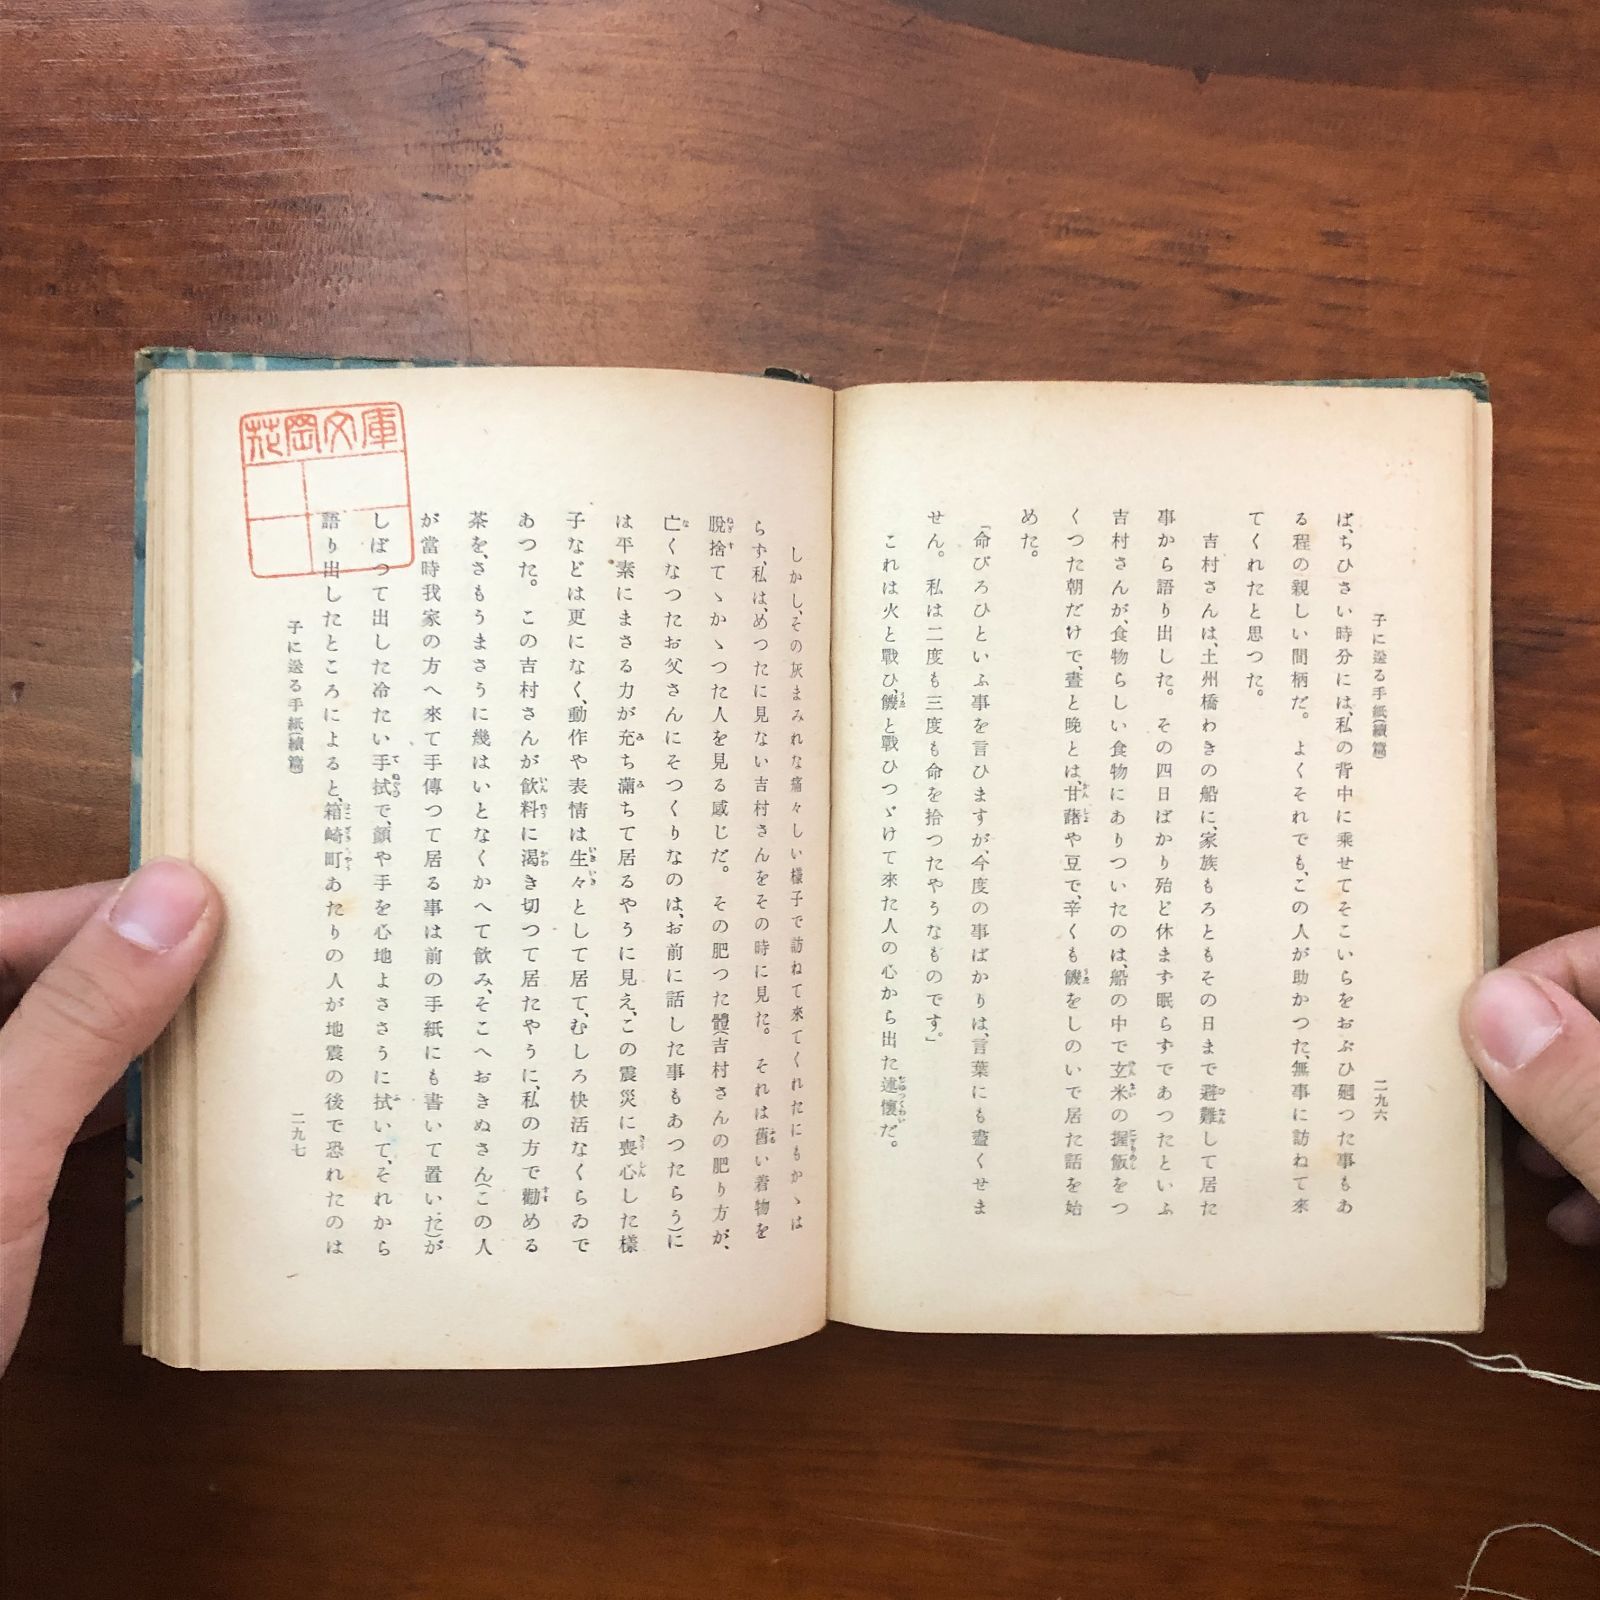 子に送る手紙(續篇)
二九六
ば、ちひさい時分には、私の背中に乘せてそこいらをおぶひ廻つた事もあ
る程の親しい間柄だ。よくそれでも、この人が助かつた、無事に訪ねて來
てくれたと思つた。
吉村さんは、土州橋わきの船に、家族もろともその日まで避難して居た
事から語り出した。その四日ばかり殆ど休まず眠らずであつたといふ
吉村さんが、食物らしい食物にありついたのは、船の中で玄米の握飯をつ
くつた朝だけで、晝と晩とは、甘藷や豆で、辛くも饑をしのいで居た話を始
めた。
「命びろひといふ事を言ひますが、今度の事ばかりは、言葉にも盡くせま
せん。私は二度も三度も命を拾つたやうなものです。」
これは火と戰ひ、饑と戰ひつゞけて來た人の心から出た述懷だ。
しかし、その灰まみれな痛々しい樣子で訪ねて來てくれたにもかゝは
らず、私は、めつたに見ない吉村さんをその時に見た。それは舊い着物を
脫捨てゝかゝつた人を見る感じだ。その肥つた體(吉村さんの肥り方が、
亡くなつたお父さんにそつくりなのは、お前に話した事もあつたらう)に
は平素にまさる力が充ち滿ちて居るやうに見え、この震災に喪心した樣
子などは更になく、動作や表情は生々として居て、むしろ快活なくらゐで
あつた。この吉村さんが飮料に渴き切つて居たやうに、私の方で勸める
茶を、さもうまさうに幾はいとなくかへて飮み、そこへおきぬさん(この人
が當時我家の方へ來て手傳つて居る事は前の手紙にも書いて置いた)が
しばつて出した冷たい手拭で、顏や手を心地よささうに拭いて、それから
語り出したところによると、箱崎町あたりの人が地震の後で恐れたのは
子に送る手紙(續篇)
二九七
萩岡文庫